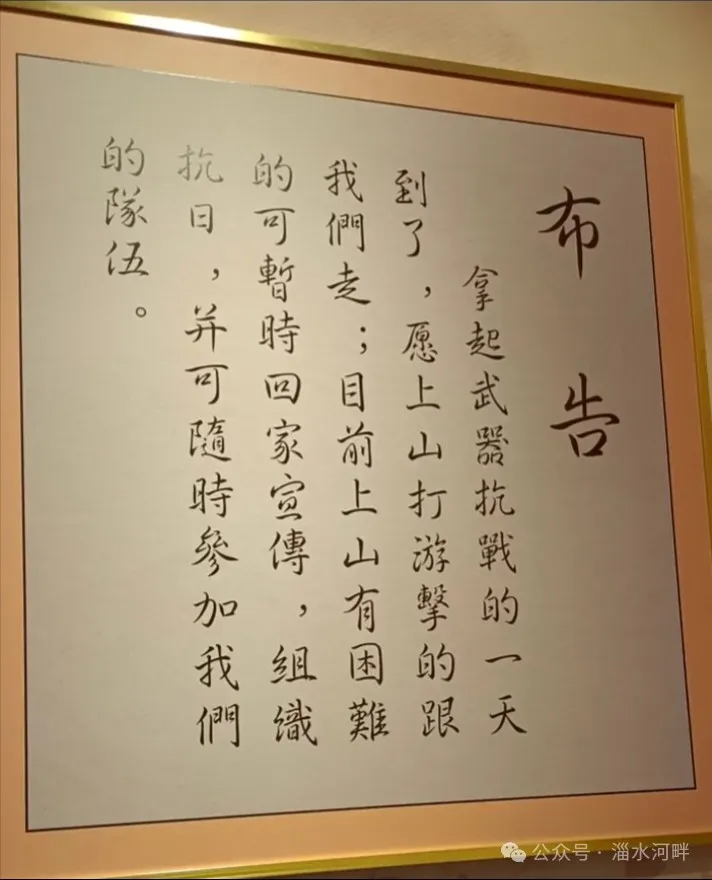 布告
拿起武器抗戰的一天
到了，愿上山打游擊的跟
我們走；目前上山有困難
的可暫時回家宣傳，組織
抗日，并可隨時參加我們
的隊伍。
公众号·淄水河畔